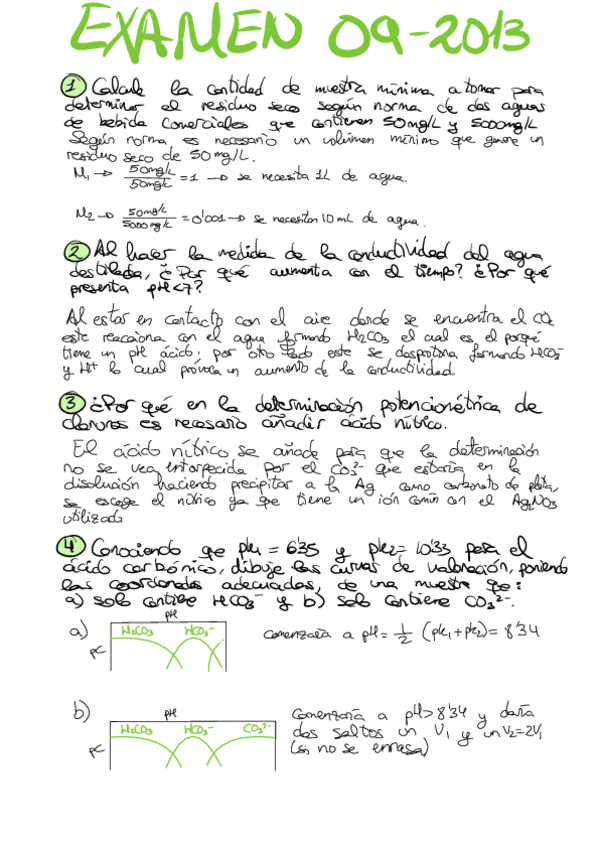 EXAMEN 09-2013
1 Calcule la cantidad de muestra mínima a tomar para
determinar el residuo seco según norma de dos aguas
de bebida comerciales que contienen 50mg/L y 5000mg/L
Según norma es necesario un volúmen mínimo que genere un
residuo seco de 50mg/L.
M1 → 50mg/L / 50mg/L = 1 → se necesita 1L de agua.
M2 → 50mg/L / 5000mg/L = 0'001 → se necesitan 10 mL de agua.
2 Al hacer la medida de la conductividad del agua
destilada, ¿Por qué aumenta con el tiempo? ¿Por qué
presenta pH<7?
Al estar en contacto con el aire donde se encuentra el CO2
este reacciona con el agua formando H2CO3 el cual es el porqué
tiene un pH ácido, por otro lado este se desprotona formando HCO3-
y H+ lo cual provoca un aumento de la conductividad
3 ¿Por qué en la determinación potenciométrica de
cloruros es necesario añadir ácido nítrico.
El ácido nítrico se añade para que la determinación
no se vea entorpecida por el CO3 2- que estaría en la
disolución haciendo precipitar a la Ag como carbonato de plata,
se escoge el nítrico ya que tiene un ión común con el AgNO3
utilizado
4 Conociendo que pk1 = 6'35 y pk2 = 10'33 para el
ácido carbónico, dibuje las curvas de valoración, poniendo
las coordenadas adecuadas, de una muestra que:
a) solo contiene HCO3- y b) solo contiene CO3 2-.
a) pH
H2CO3 HCO3-
pC
comenzaría a pH = 1/2 (pk1+pk2) = 8'34
b) pH
H2CO3 HCO3- CO3 2-
pC
Comenzaría a pH>8'34 y daría
dos saltos un V1 y un V2=2V1
(si no se enrasa)